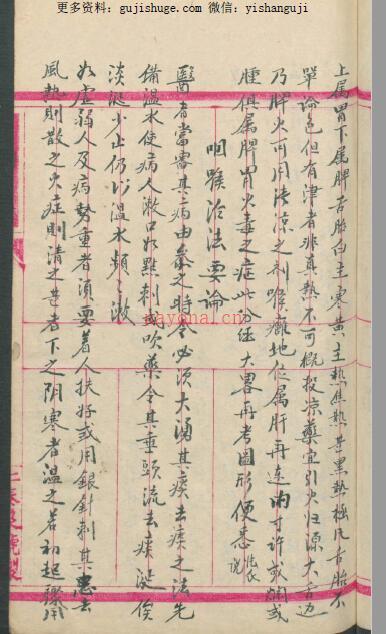 更多资料：gujishuge.com 微信：yishanguji
上属胃下属脾舌胎白主寒黄主热焦热甚黑热极凡舌胎不
單论色但有津者非真热不可概投凉藥宜引火归源大舌边
乃脾火可用清凉之剂喉癰地位属肝再連两寸许或烟或
腫俱属脾胃火毒之症此分经大畧再考圖形便悉
咽喉治法要论
醫者當審其病由参之時令必须大湧其痰去痰之法先
備溫水使病人漱口如點刺或吹藥令其垂頭流去痰涎俟
淡涎少止仍以溫水頻頻漱
如虚弱人及病势重者須要着人扶好或用銀針刺其惡去
風熱則散之火症則清之甚者下之阴寒者溫之若初起骤用